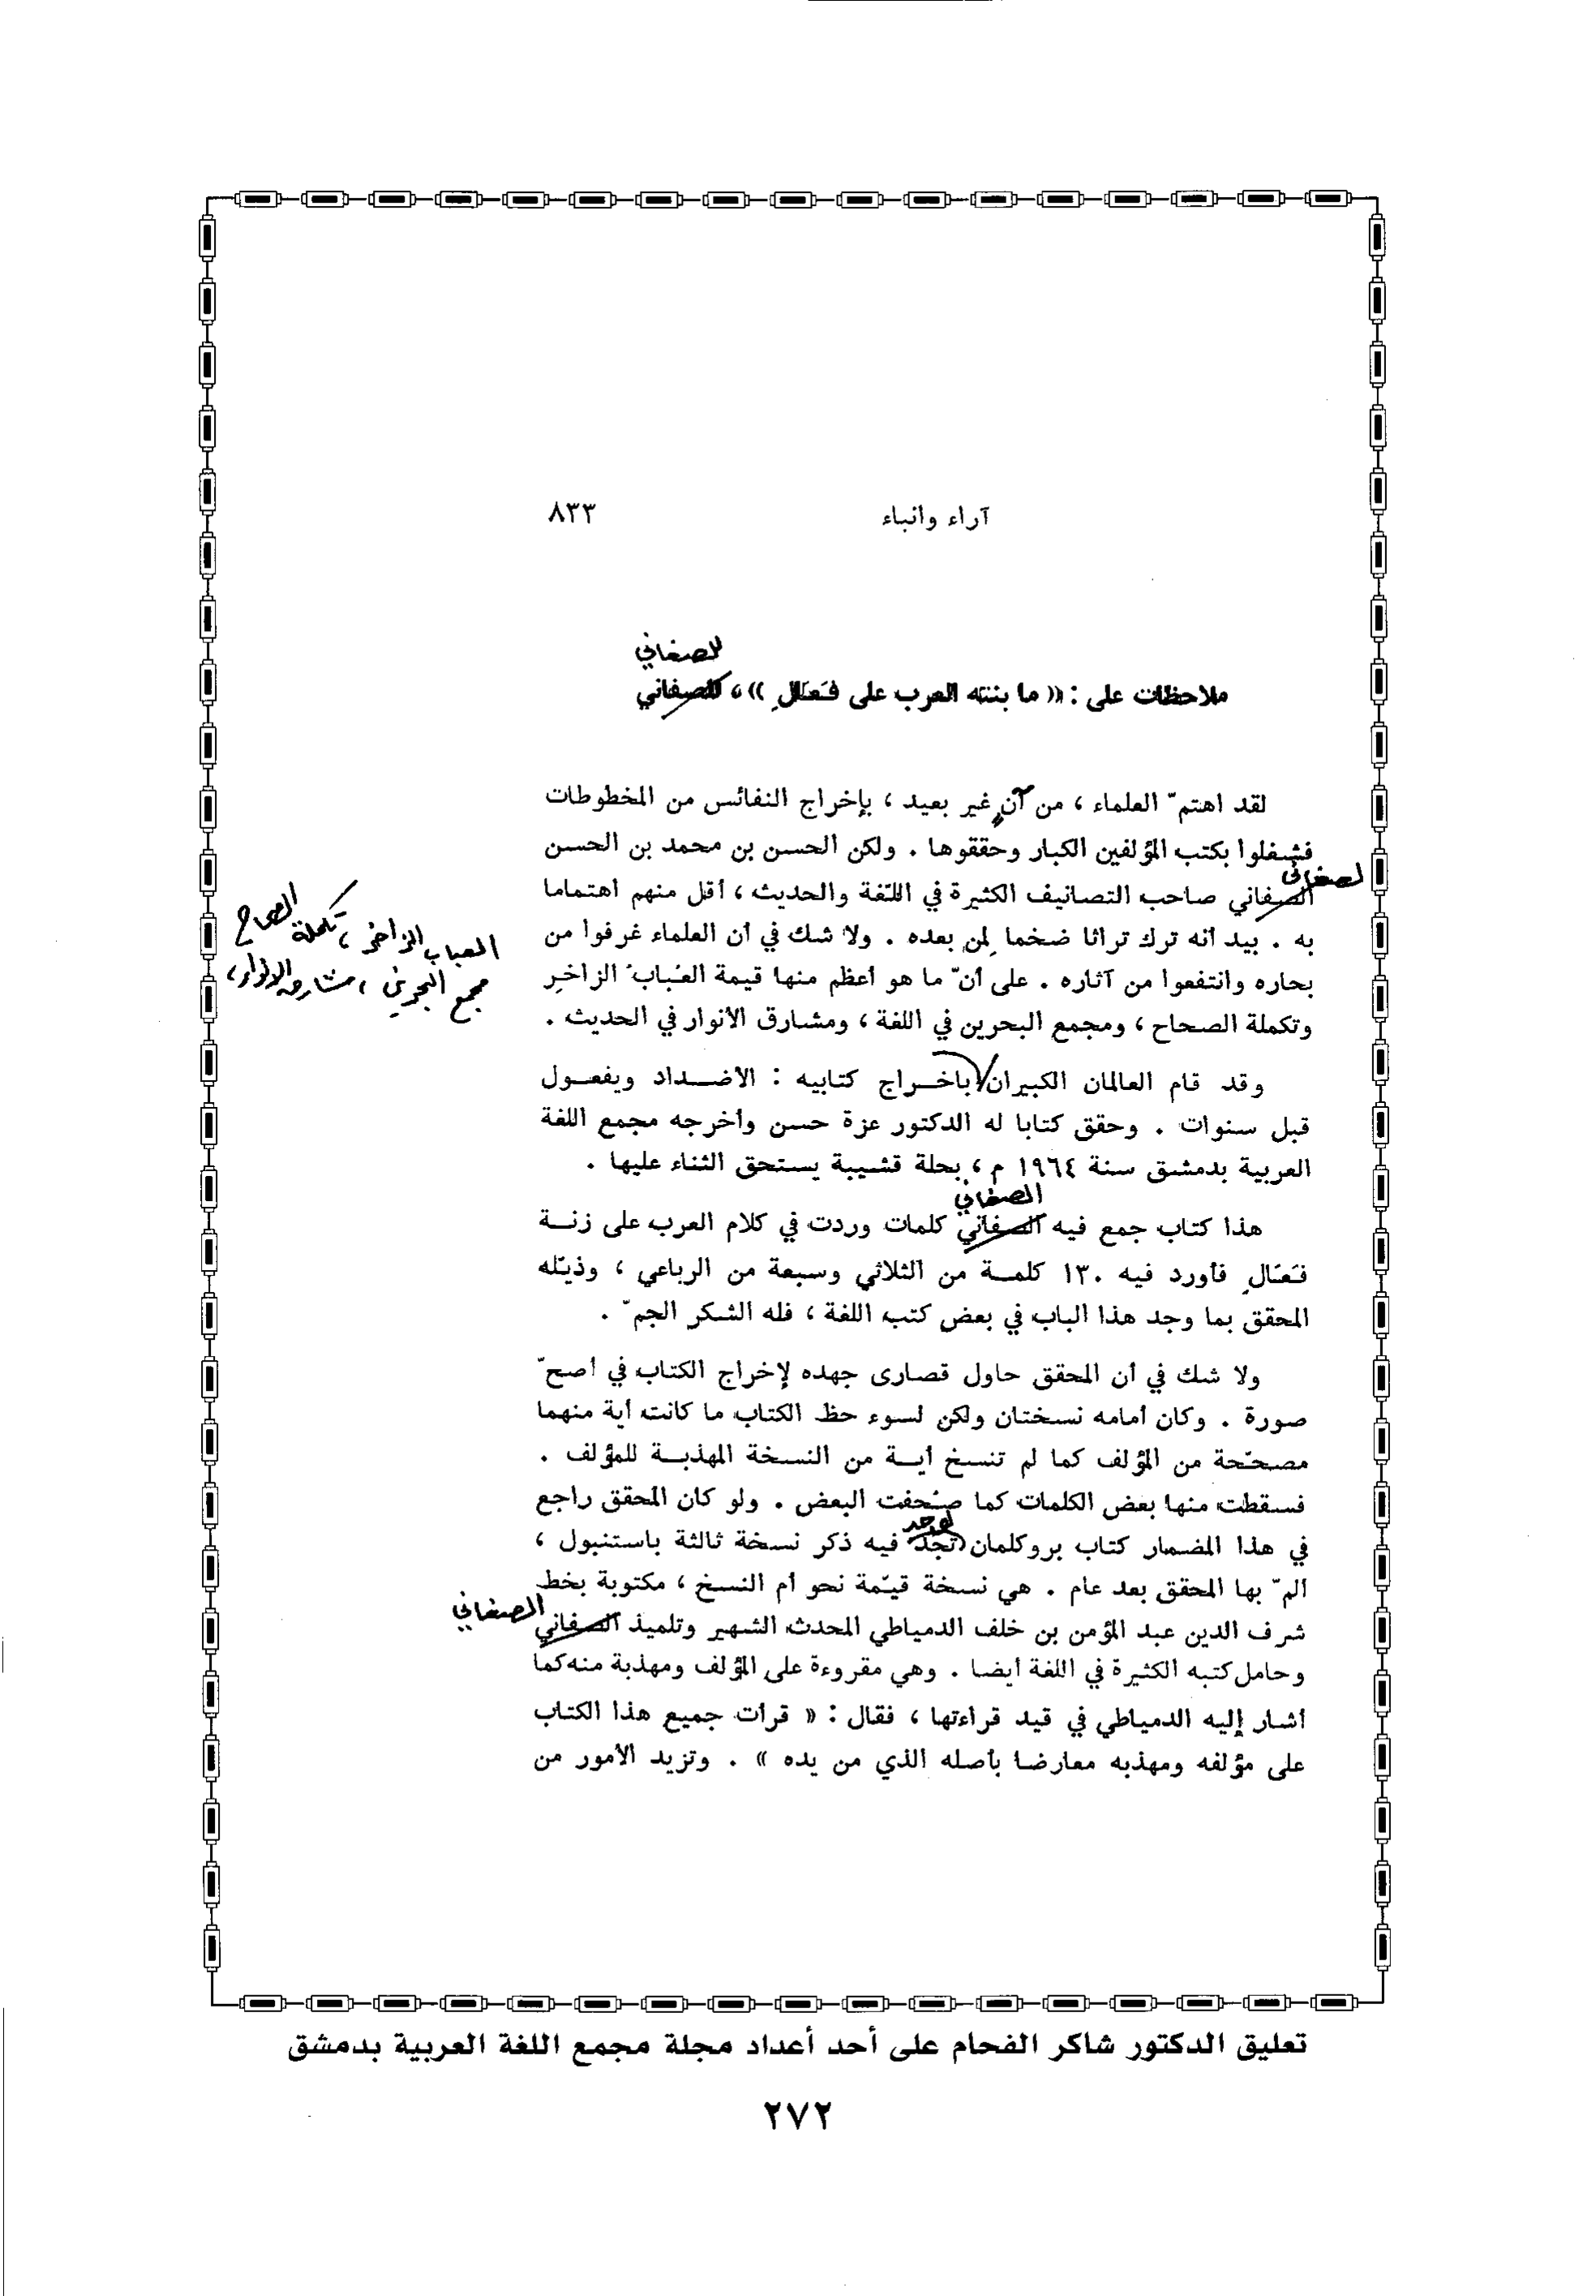 آراء وأنباء ٨٣٣
للصغاني
ملاحظات على : « ما بنته العرب على فَعَالِ » ، للصفاني
لقد اهتمّ العلماء ، من آنٍ غير بعيد ، بإخراج النفائس من المخطوطات
فشغلوا بكتب المؤلفين الكبار وحققوها . ولكن الحسن بن محمد بن الحسن
الصفاني صاحب التصانيف الكثيرة في اللغة والحديث ، أقل منهم اهتماما
لصغاني
به . بيد أنه ترك تراثا ضخما لِمن بعده . ولا شك في أن العلماء غرفوا من
بحاره وانتفعوا من آثاره . على أنّ ما هو أعظم منها قيمة العُبابُ الزاخر
وتكملة الصحاح ، ومجمع البحرين في اللغة ، ومشارق الأنوار في الحديث .
العباب الزاخر ، تكملة الصحاح
مجمع البحرين ، مشارق الأنوار ،
وقد قام العالمان الكبيران باخـراج كتابيه : الاضـداد ويفعـول
قبل سنوات . وحقق كتابا له الدكتور عزة حسن وأخرجه مجمع اللغة
العربية بدمشق سنة ١٩٦٤ م ، بحلة قشيبة يستحق الثناء عليها .
الصغاني
هذا كتاب جمع فيه الصفاني كلمات وردت في كلام العرب على زنـة
فَعَالِ فأورد فيه ١٣٠ كلمـة من الثلاثي وسبعة من الرباعي ، وذيّله
المحقق بما وجد هذا الباب في بعض كتب اللغة ، فله الشكر الجمّ .
ولا شك في أن المحقق حاول قصارى جهده لإخراج الكتاب في أصحّ
صورة . وكان أمامه نسختان ولكن لسوء حظ الكتاب ما كانت أية منهما
مصحّحة من المؤلف كما لم تنسخ أيـة من النسخة المهذبـة للمؤلف .
فسقطت منها بعض الكلمات كما صُحفت البعض . ولو كان المحقق راجع
لوجد
في هذا المضمار كتاب بروكلمان تجد فيه ذكر نسخة ثالثة باستنبول ،
المّ بها المحقق بعد عام . هي نسخة قيّمة نحو أم النسخ ، مكتوبة بخط
شرف الدين عبد المؤمن بن خلف الدمياطي المحدث الشهير وتلميذ الصفاني
الصغاني
وحامل كتبه الكثيرة في اللغة أيضا . وهي مقروءة على المؤلف ومهذبة منه كما
أشار إليه الدمياطي في قيد قراءتها ، فقال : « قرأت جميع هذا الكتاب
على مؤلفه ومهذبه معارضا بأصله الذي من يده » . وتزيد الأمور من
تعليق الدكتور شاكر الفحام على أحد أعداد مجلة مجمع اللغة العربية بدمشق
٢٧٢